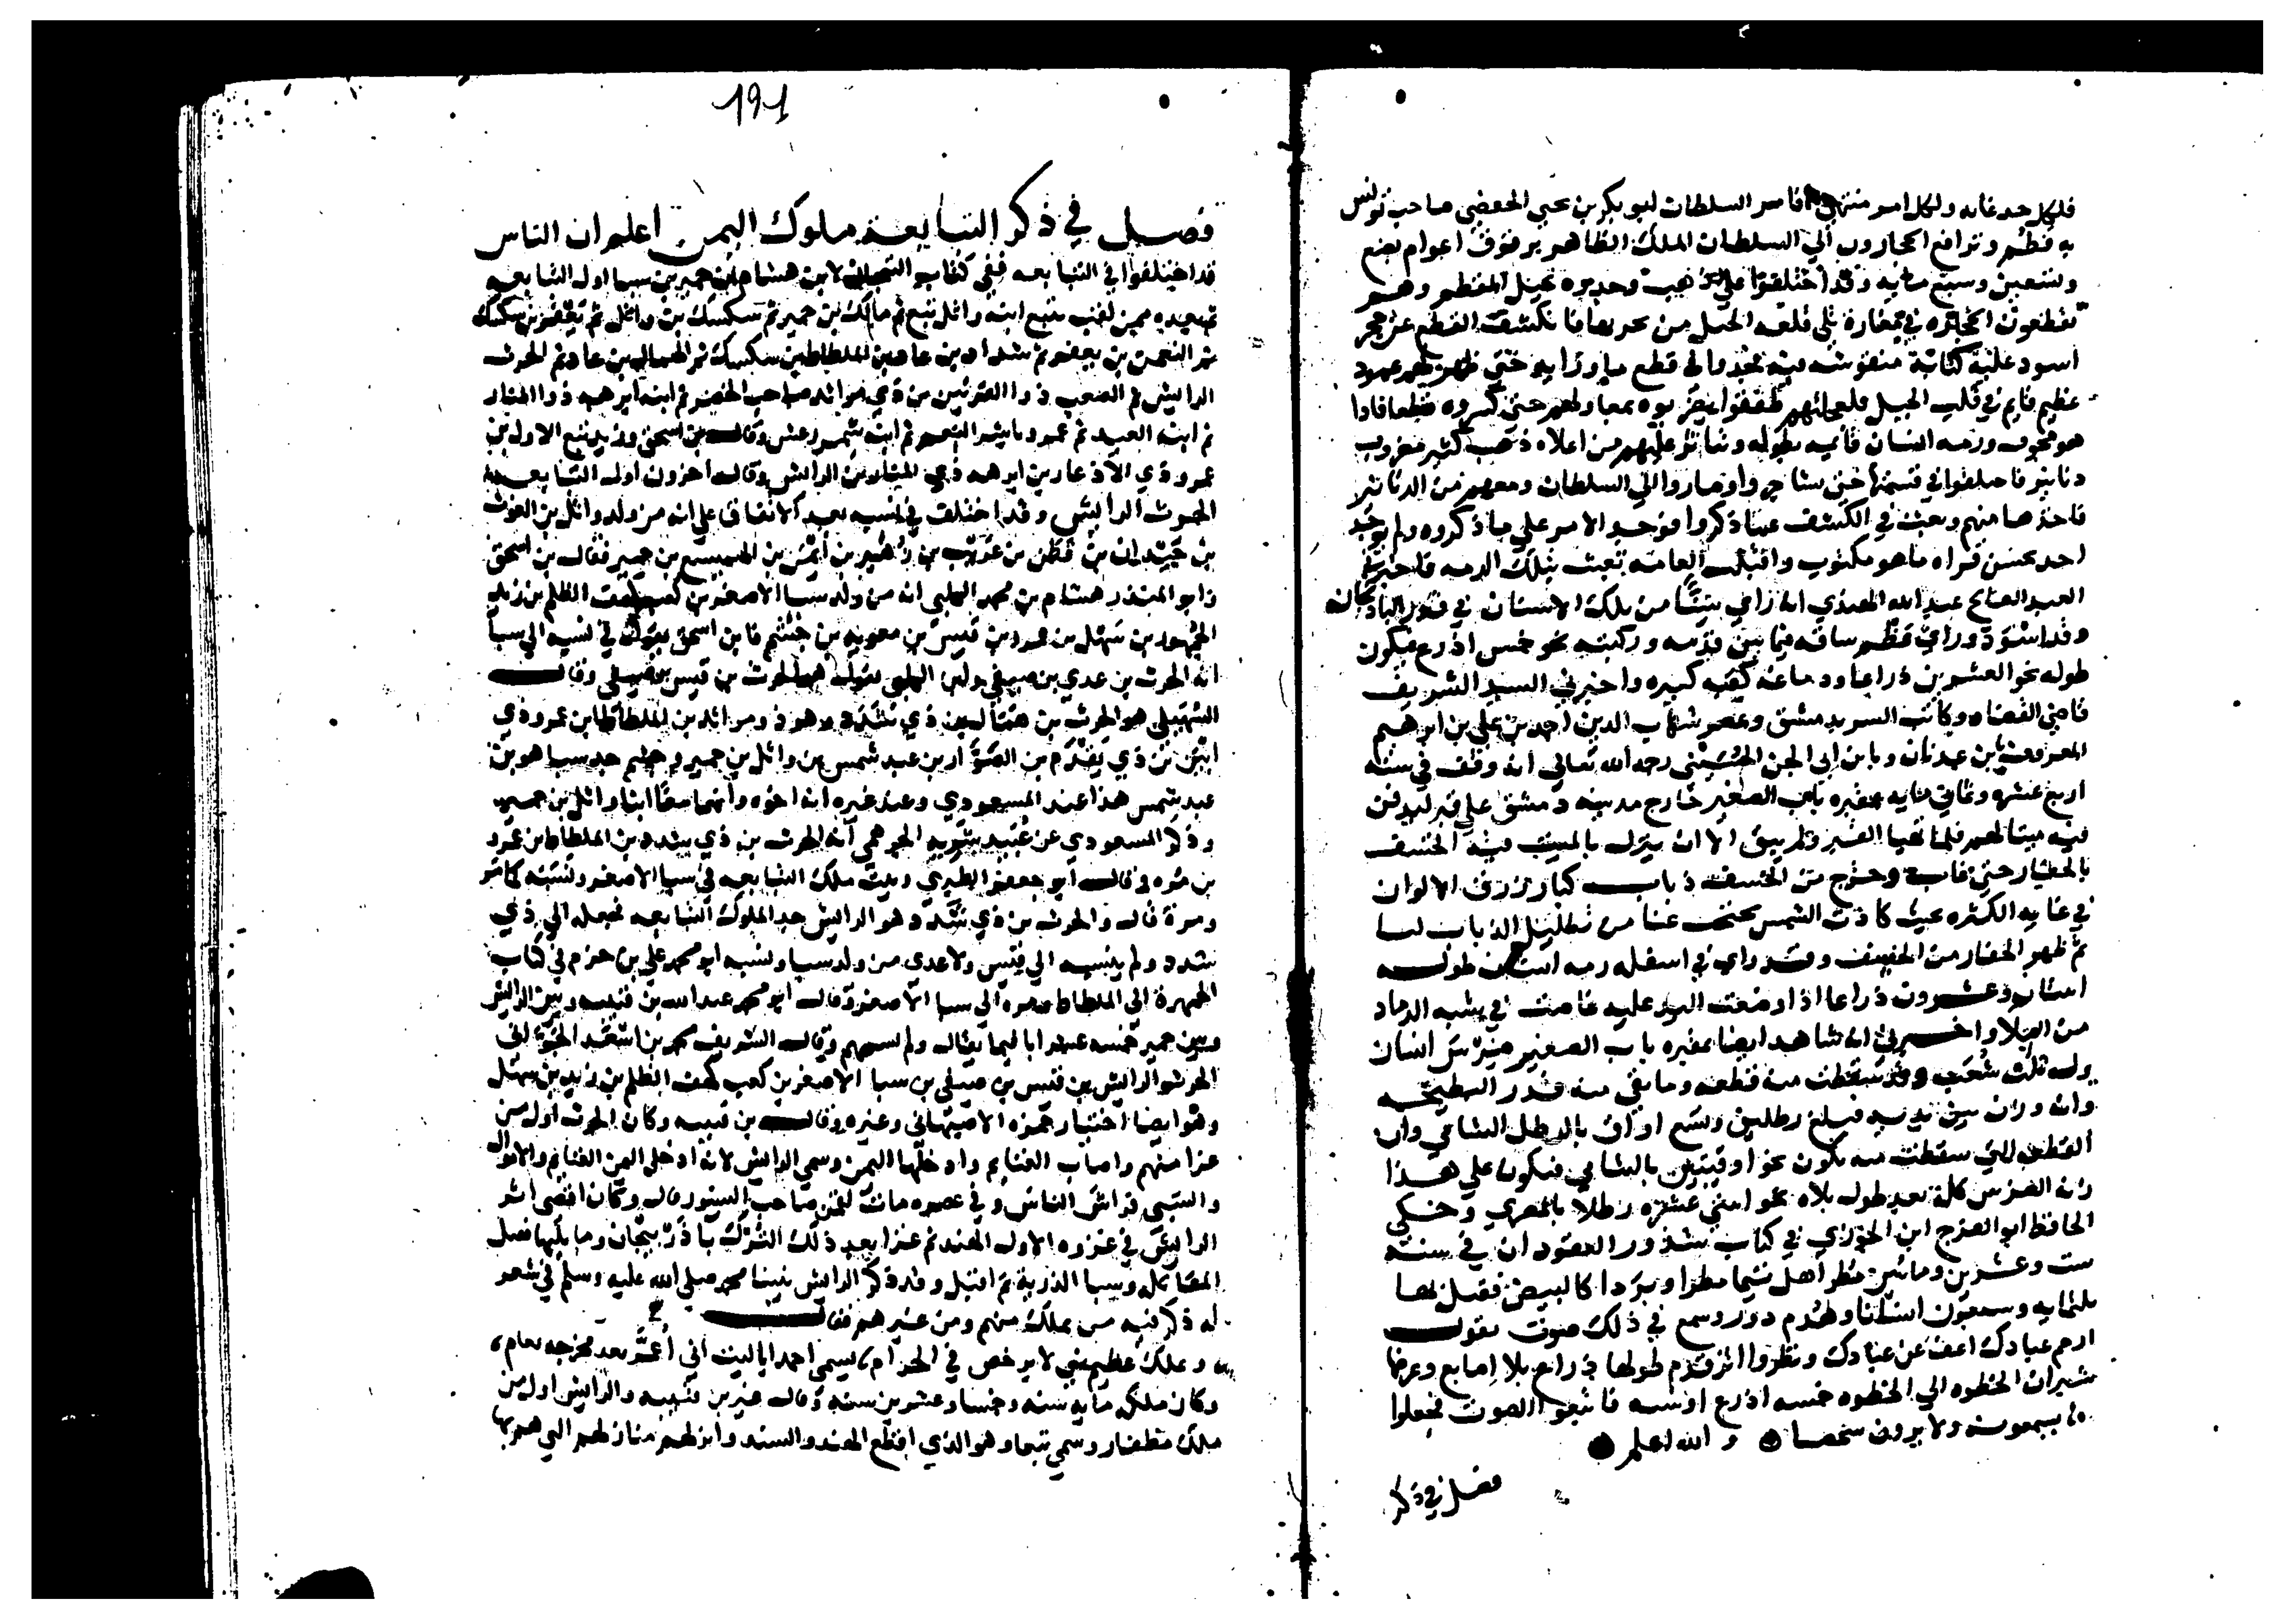 فلكل حد غايه ولكل امر منتهي فامر السلطان ابو بكر بن يحيي الحفصي صاحب تونس
به فطم وترافع الحجارون الي السلطان الملك الظاهر برقوق اعوام بضع
وتسعين وسبع مايه وقد اختلفوا علي ذهب وجدوه بجبل المقطم وهم
يقطعون الحجاره في مغارة تلي قلعه الجبل من بحريها فانكشف القطع عن حجر
اسود عليه كتابة منقوشه فيه فجدوا في قطع ما وراه حتي ظهر لهم عمود
عظيم قايم في قلب الجبل فلعجلتهم طفقوا يضربوه بمعاولهم حتي كسروه قطعا فاذا
هو مجوف ورمه انسان قائمه بطوله وتناثر عليهم من اعلاه ذهب كثير مضروب
دنانير فاختلفوا في قسمتها حتي تشاجروا وصاروا الي السلطان ومعهم من الدنانير
فاخذها منهم وبعث في الكشف عما ذكروا فوجد الامر علي ما ذكروه ولم يوجد
احد يحسن قراه ما هو مكتوب واقبلت العامه تعبث بتلك الرمه فاخبرني
العبد الصالح عبد الله الهندي انه راي سنا من تلك الاسنان في قدر الباذنجانه
وقد اسود وراي عظم ساقه فيما بين قدمه وركبته نحو خمس اذرع فيكون
طوله نحو العشرين ذراعا ودماغه كقبه كبيره واخبرني السيد الشريف
قاضي القضاه وكاتب السر بدمشق ومصر شهاب الدين احمد بن علي بن ابرهيم
المعروف بابن عدنان وبابن ابي الجن الحسيني رحمه الله تعالي انه وقف في سنه
اربع عشره وثماني مايه بمقبره باب الصغير خارج مدينه دمشق علي قبر ليدفن
فيه ميتا لهم فلما تهيا القبر ولم يبق الا ان ينزل بالميت فيه انخسف
بالحفار حتي غاب وخرج من الخسف ذباب كبار زرق الالوان
في غايه الكثره بحيث كادت الشمس تحتجب عنا من تظليل الذباب لنا
ثم ظهر الحفار من الخسف وقد راي في اسفله رمه انسان طوله
اثنان وعشرون ذراعا اذا وضعت اليد عليه غاصت في شبه الرماد
من البلا واخبرني انه شاهد ايضا بمقبره باب الصغير ضرس انسان
وله ثلث شعب وقد سقطت منه قطعه وما بقي منه قدر البطيخه
وانه وزن بين يديه فبلغ رطلين وتسع اواق بالرطل الشامي وان
القطعه التي سقطت منه تكون نحو اوقيتين بالشامي فيكون علي هذا
زنه الضرس كله بعد طول بلاه نحو اثني عشره رطلا بالمصري وحكي
الحافظ ابو الفرج ابن الجوزي في كتاب شذور العقود ان في سنه
ست وعشرين ومائتين مطر اهل تيما مطرا وبردا كالبيض فقتل بها
ثلثمايه وسبعون انسانا وهدم دور وسمع في ذلك صوت يقول
ارحم عبادك اعف عن عبادك ونظروا اثر قدم طولها ذراع بلا اصابع وعرضها
شبران الخطوه الي الخطوه خمسه اذرع او سته فاتبعوا الصوت فجعلوا
يسمعون ولا يرون شخصا والله اعلم
فصل في ذكر
191
فصل في ذكر التبابعه ملوك اليمن اعلم ان الناس
قد اختلفوا في التبابعه ففي كتاب التيجان لابن هشام ان حمير بن سبا اول التبابعه
ثم بعده ممن لقب بتبع ابنه وائل تبع ثم مالك بن حمير ثم سكسك بن وائل ثم يعفر بن سكسك
ثم النعمن بن يعفر ثم شداد بن عاد بن الملطاط بن سكسك ثم الهمال بن عاد ثم الحرث
الرايش ثم الصعب ذو القرنين بن ذي مراثد صاحب الخضر ثم ابنه ابرهه ذو المنار
ثم ابنه العبد ثم عمرو ناشر النعم ثم ابنه شمر رعش وقال بن اسحق وزيد تبع الاول بن
عمرو ذي الاذعار بن ابرهه ذي المنار بن الرائش وقال اخرون اول التبابعه
الحرث الرايش وقد اختلف في نسبه بعد الاتفاق علي انه من ولد وائل بن الغوث
بن جيدان بن قطن بن عريب بن زهير بن ايمن بن الهميسع بن حمير فقال بن اسحق
وابو المنذر هشام بن محمد الكلبي انه من ولد سبا الاصغر بن كعب كهف الظلم بن زيد
الجمهور بن سهل بن عمرو بن قيس بن معويه بن جشم فابن اسحق يقول في نسبه الي سبا
انه الحرث بن عدي بن صيفي وابن الكلبي يقول هو الحرث بن قيس بن صيفي وقال
السهيلي هو الحرث بن همال بن ذي شدد وهو ذو مراثد بن الملطاط بن عمرو ذي
ابين بن ذي يقدم بن الصوار بن عبد شمس بن وائل بن حمير وجشم جد سبا هو بن
عبد شمس هذا عند المسعودي وعند غيره انه اخوه وانهما معا ابنا وائل بن حمير
وذكر المسعودي عن عبيد بن شريه الجرهمي انه الحرث بن ذي شدد بن الملطاط بن عمرو
بن مره وقال ابو جعفر الطبري وبيت ملك التبابعه في سبا الاصغر ونسبه كما مر
ومرة قال والحرث بن ذي شدد هو الرايش جد الملوك التبابعه فجعله الي ذي
شدد ولم ينسبه الي قيس ولا عدي من ولد سبا ونسبه ابو محمد علي بن حزم في كتاب
الجمهرة الي الملطاط ومره الي سبا الاصغر وقال ابو محمد عبد الله بن قتيبه وبين الرايش
وبين حمير خمسه عشر ابا فيما يقال ولم يسمهم وقال الشريف محمد بن اسعد الجواني
الحرث الرايش بن قيس بن صيفي بن سبا الاصغر بن كعب كهف الظلم بن زيد بن سهل
وهو ايضا اختيار حمزه الاصبهاني وغيره وقال بن قتيبه وكان الحرث اول من
غزا منهم واصاب الغنايم وادخلها اليمن وسمي الرايش لانه ادخل اليمن الغنايم والاموال
والسبي فراش الناس وفي عصره مات لقمن صاحب النسور قال وكان اقصي اثر
الرايش في غزوه الاول الهند ثم غزا بعد ذلك الترك باذربيجان وما يليها فقتل
المقاتله وسبا الذرية ثم اقبل وقد ذكر الرايش نبينا محمد صلي الله عليه وسلم في شعر
له ذكر فيه من يملك منهم ومن غيرهم فقال
ويملك عظيم نبي لا يرخص في الحرام، يسمي احمد ايا ليت اني أعمر بعد مخرجه بعام،
وكان ملكه مايه سنه وخمسا وعشرين سنه وقال غير بن قتيبه والرايش اول من
ملك بظفار وسمي تبعا وهو الذي اقطع الهند والسند وانزلهم منازلهم التي هم بها